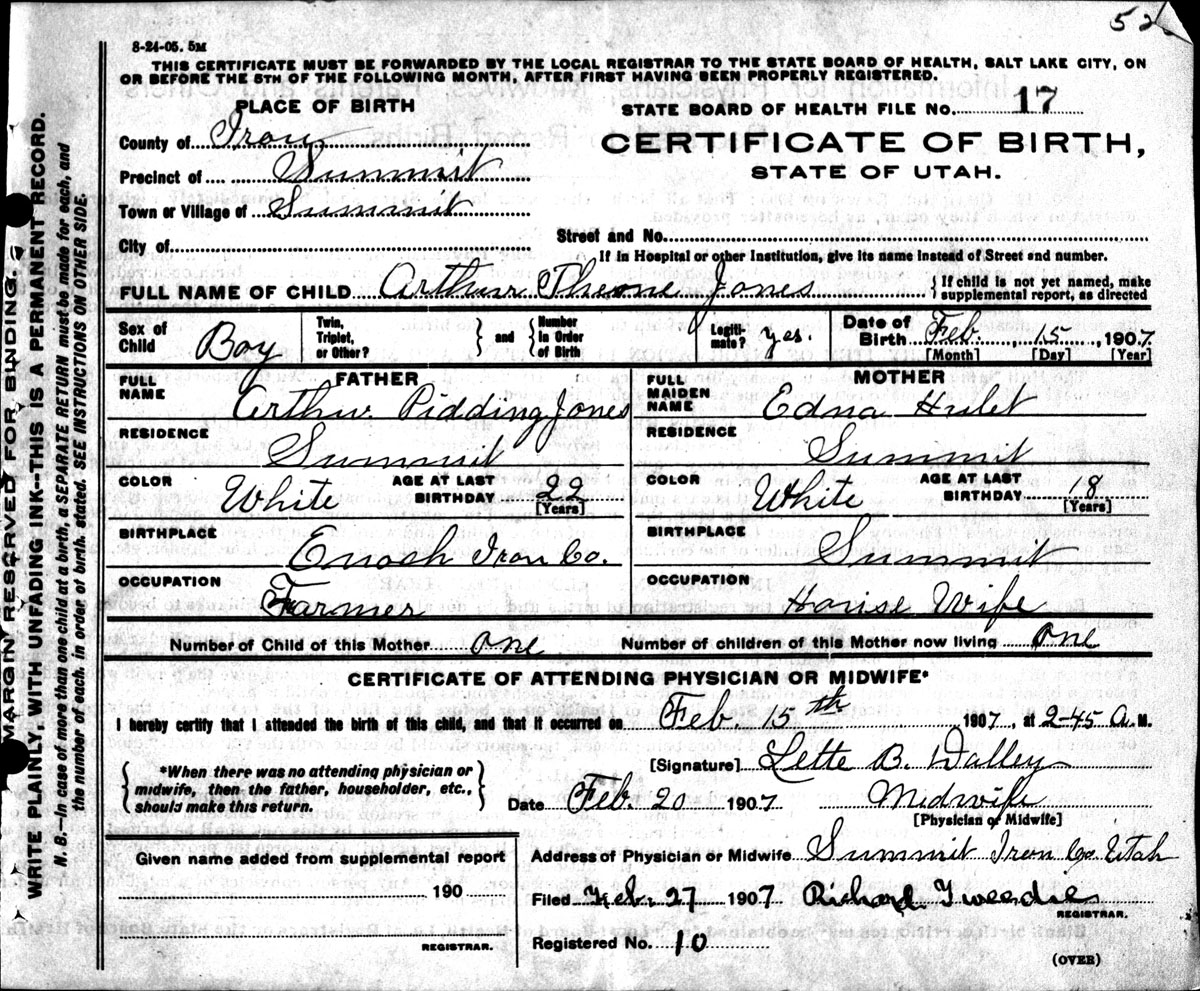 52
8-24-05. 5M
THIS CERTIFICATE MUST BE FORWARDED BY THE LOCAL REGISTRAR TO THE STATE BOARD OF HEALTH, SALT LAKE CITY, ON
OR BEFORE THE 5TH OF THE FOLLOWING MONTH, AFTER FIRST HAVING BEEN PROPERLY REGISTERED.
PLACE OF BIRTH
STATE BOARD OF HEALTH FILE NO. 17
County of Iron
CERTIFICATE OF BIRTH,
STATE OF UTAH.
Precinct of Summit
Town or Village of Summit
City of
Street and No.
If in Hospital or other Institution, give its name instead of Street and number.
FULL NAME OF CHILD Arthur Theone Jones { If child is not yet named, make
supplemental report, as directed
Sex of Child Boy
Twin, Triplet, or Other? } and { Number in Order of Birth
Legitimate? Yes.
Date of Birth Feb. 15, 1907
[Month] [Day] [Year]
FATHER
FULL NAME Arthur Pidding Jones
RESIDENCE Summit
COLOR White AGE AT LAST BIRTHDAY 22 [Years]
BIRTHPLACE Enoch Iron Co.
OCCUPATION Farmer
MOTHER
FULL MAIDEN NAME Edna Hulet
RESIDENCE Summit
COLOR White AGE AT LAST BIRTHDAY 18 [Years]
BIRTHPLACE Summit
OCCUPATION House Wife
Number of Child of this Mother One Number of children of this Mother now living One
CERTIFICATE OF ATTENDING PHYSICIAN OR MIDWIFE*
I hereby certify that I attended the birth of this child, and that it occurred on Feb. 15th 1907, at 2-45 A. M.
{ *When there was no attending physician or
midwife, then the father, householder, etc.,
should make this return. }
[Signature] Lette B. Dalley
Date Feb. 20 1907 Midwife
[Physician or Midwife]
Given name added from supplemental report
190
REGISTRAR.
Address of Physician or Midwife Summit Iron Co Utah
Filed Feb. 27 1907 Richard Tweedie
REGISTRAR.
Registered No. 10
(OVER)
MARGIN RESERVED FOR BINDING.
WRITE PLAINLY, WITH UNFADING INK--THIS IS A PERMANENT RECORD.
N. B.—In case of more than one child at a birth, a SEPARATE RETURN must be made for each, and
the number of each, in order of birth, stated. SEE INSTRUCTIONS ON OTHER SIDE.